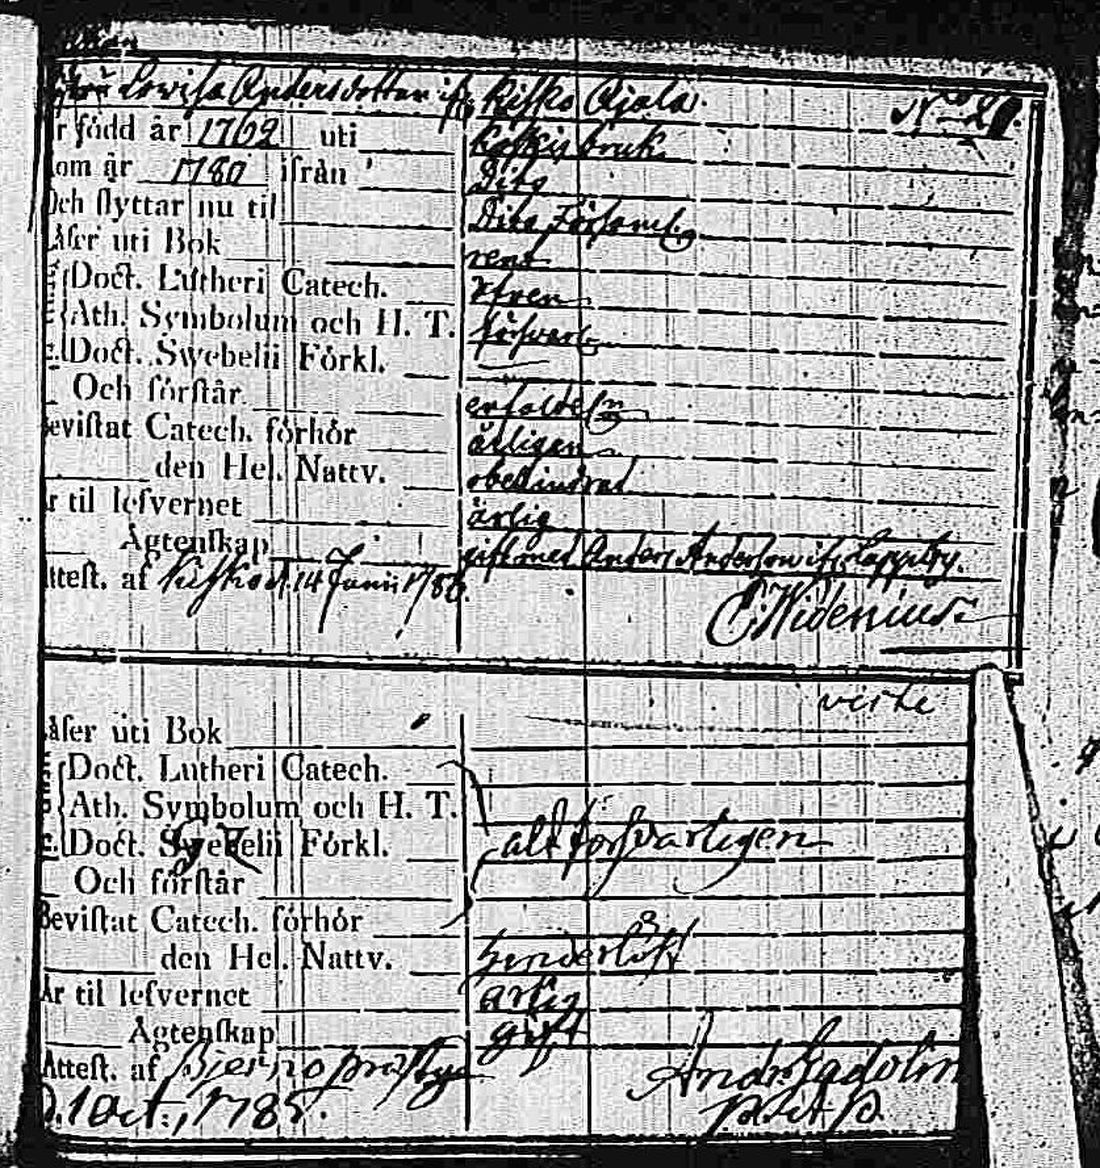 Lovisa Andersdotter ifr. Kisko Ajala. No 21.
r född år 1762 uti Koskis bruk
om år 1780 ifrån Dito
Och flyttar nu til Dito Församl.
äser uti Bok rent
Doct. Lutheri Catech.
Ath. Symbolum och H. T. försvarl.
Doct. Swebelii Förkl.
Och förstår
Bevistat Catech. förhör årligen
den Hel. Nattv. obehindrad
Är til lefvernet ärlig
Ägtenskap gift med Anders Andersson ifr.
Attest. af Kisko d. 14 Junii 1786.
E. Widenius
äser uti Bok
Doct. Lutheri Catech.
Ath. Symbolum och H. T.
Doct. Swebelii Förkl. alt försvarligen
Och förstår
Bevistat Catech. förhör
den Hel. Nattv. hinderlöst
Är til lefvernet ärlig
Ägtenskap gift
Attest. af Bierno Andr. Gadolin
d. 1 Oct., 1785. P. et P.